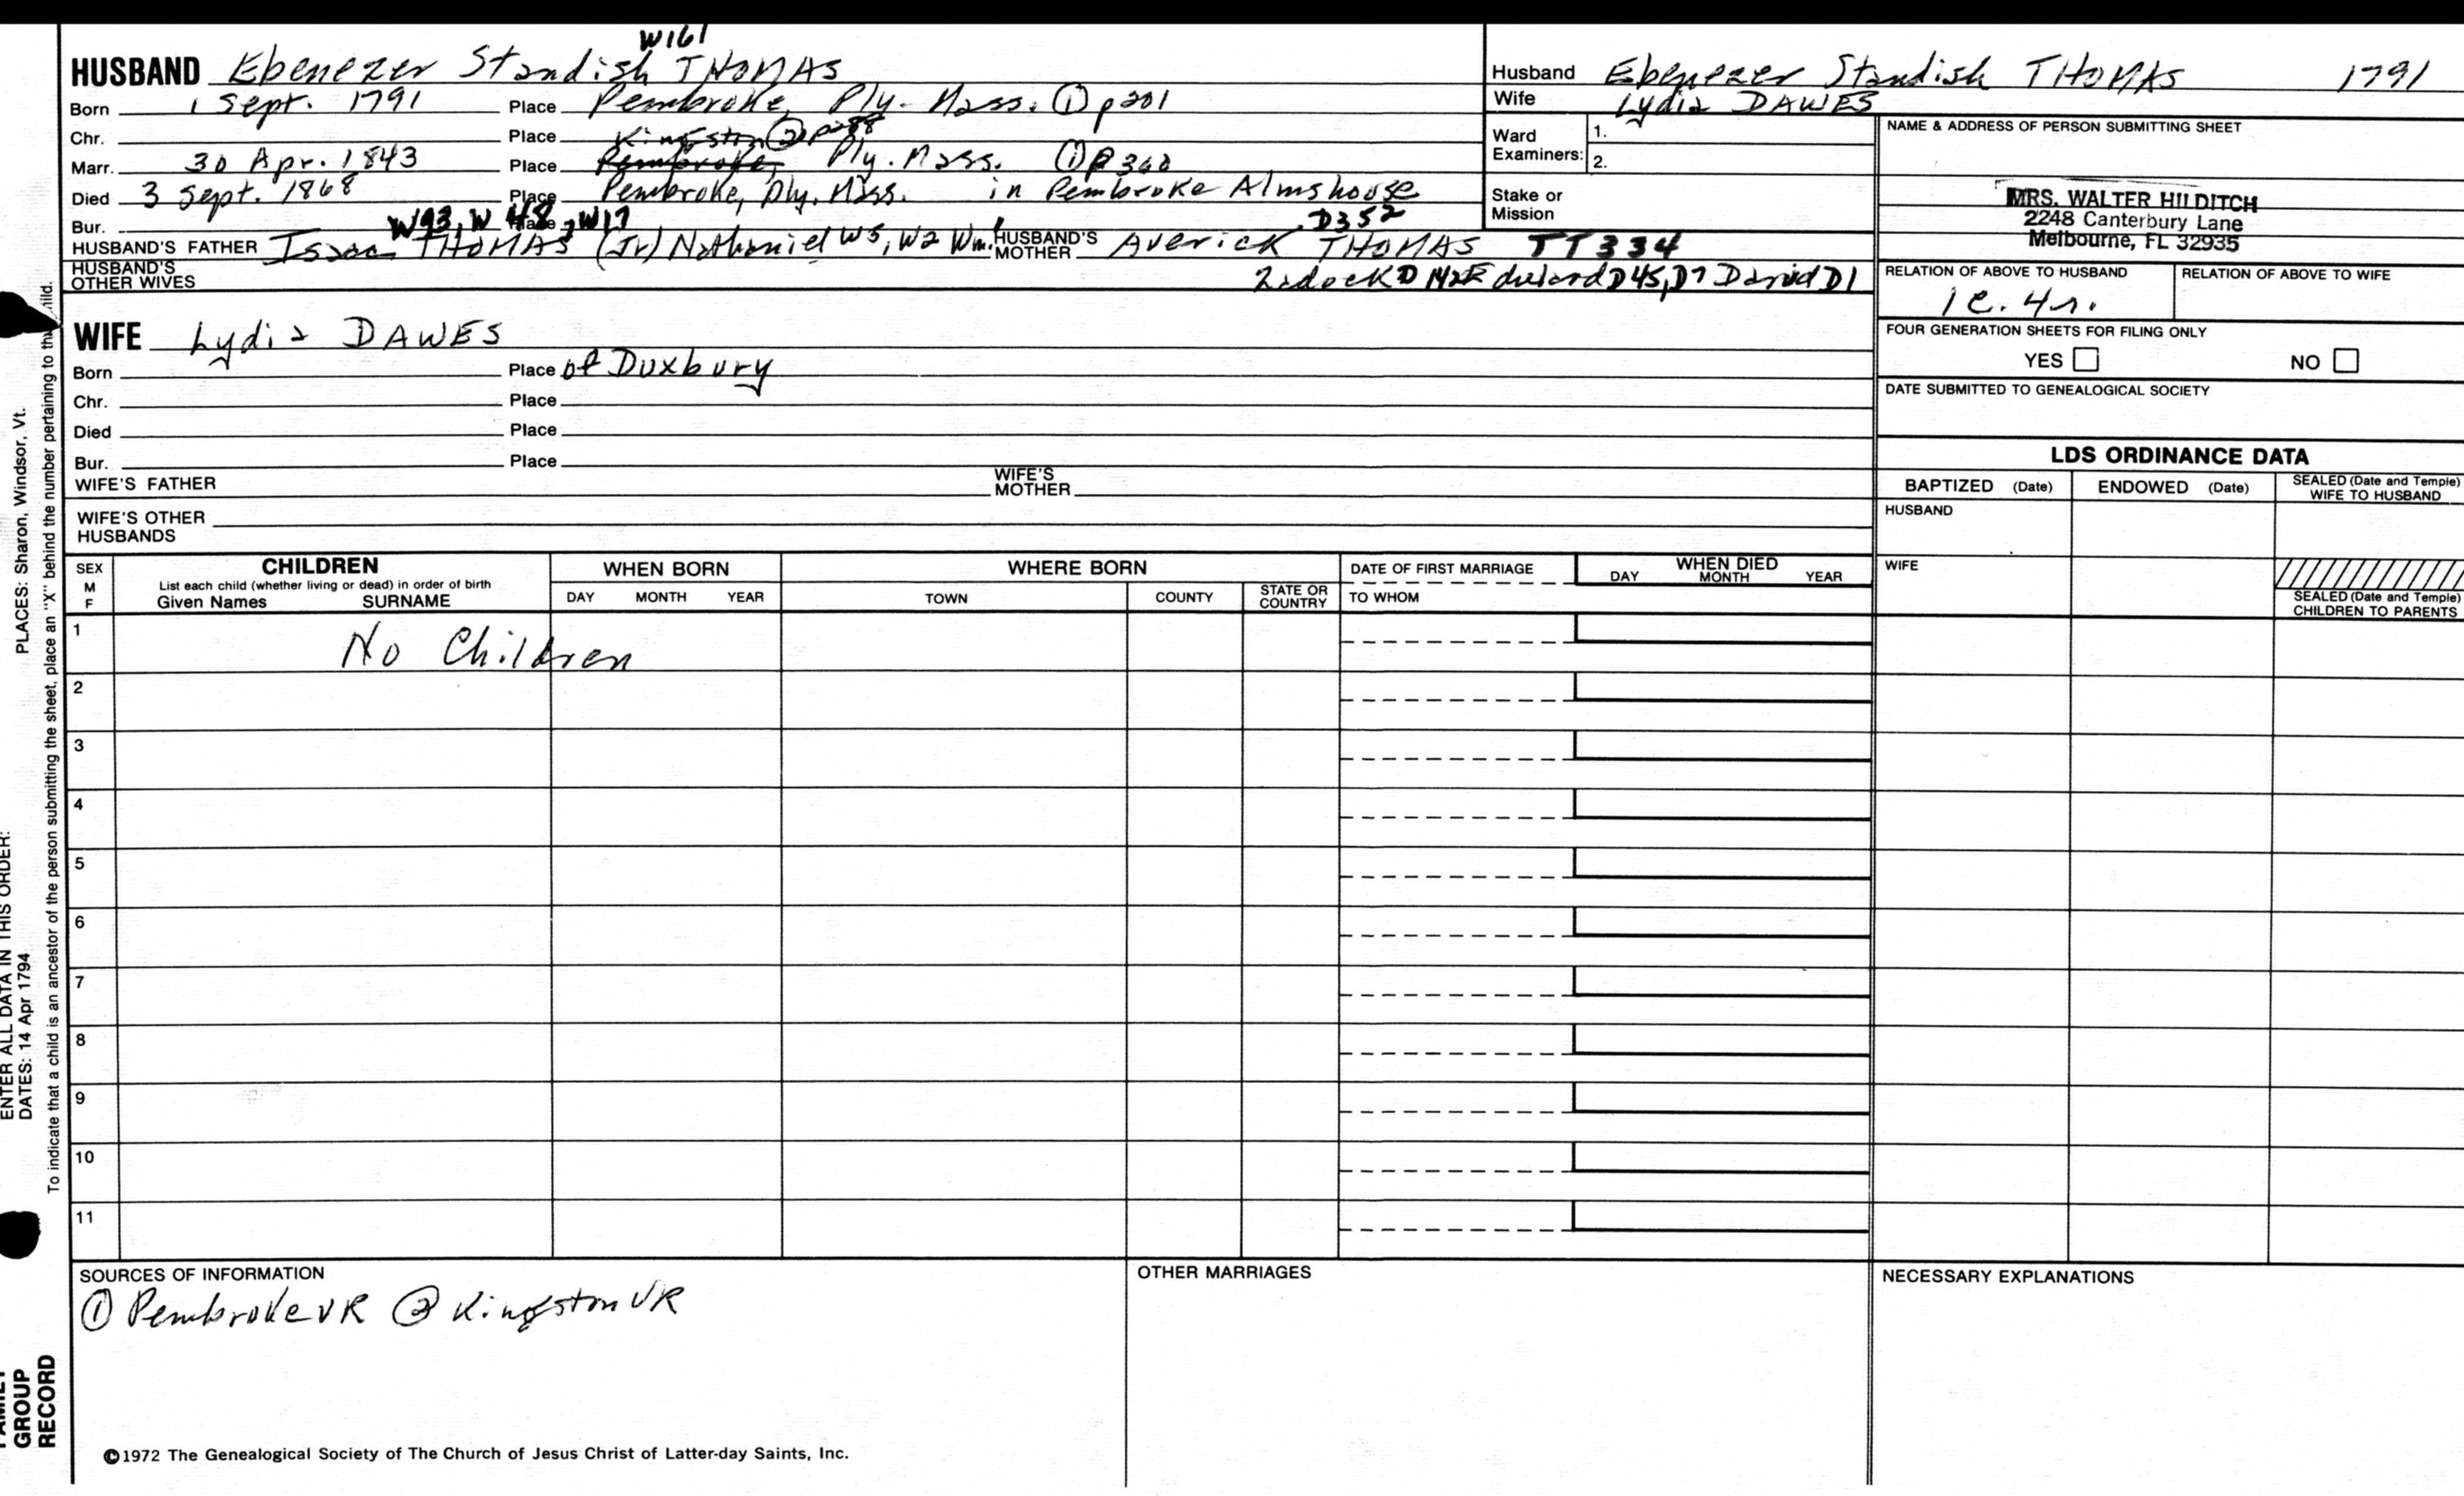 W161
HUSBAND Ebenezer Standish THOMAS
Born 1 Sept. 1791 Place Pembroke, Ply. Mass. ① p201
Chr. Place Kingston ② p288
Marr. 30 Apr. 1843 Place Pembroke, Ply. Mass. ① p 360
Died 3 Sept. 1868 Place Pembroke, Ply. Mass. in Pembroke Almshouse
Bur. Place W93, W48, W17 D352
HUSBAND'S FATHER Isaac THOMAS (Jr) Nathaniel W5, W2 Wm.1 HUSBAND'S MOTHER Averick THOMAS TT334
HUSBAND'S OTHER WIVES Zadock D142 Edward D45, D7 David D1
WIFE Lydia DAWES
Born Place of Duxbury
Chr. Place
Died Place
Bur. Place
WIFE'S FATHER WIFE'S MOTHER
WIFE'S OTHER HUSBANDS
Husband Ebenezer Standish THOMAS 1791
Wife Lydia DAWES
Ward Examiners: 1.
2.
Stake or Mission
NAME & ADDRESS OF PERSON SUBMITTING SHEET
MRS. WALTER HILDITCH
2248 Canterbury Lane
Melbourne, FL 32935
RELATION OF ABOVE TO HUSBAND RELATION OF ABOVE TO WIFE
1c. 4r.
FOUR GENERATION SHEETS FOR FILING ONLY
YES NO
DATE SUBMITTED TO GENEALOGICAL SOCIETY
LDS ORDINANCE DATA
BAPTIZED (Date) ENDOWED (Date) SEALED (Date and Temple) WIFE TO HUSBAND
HUSBAND
WIFE
SEALED (Date and Temple) CHILDREN TO PARENTS
SEX M F CHILDREN WHEN BORN WHERE BORN DATE OF FIRST MARRIAGE WHEN DIED
List each child (whether living or dead) in order of birth
Given Names SURNAME DAY MONTH YEAR TOWN COUNTY STATE OR COUNTRY TO WHOM DAY MONTH YEAR
1 No Children
2
3
4
5
6
7
8
9
10
11
SOURCES OF INFORMATION
① Pembroke VR ② Kingston VR
OTHER MARRIAGES
NECESSARY EXPLANATIONS
©1972 The Genealogical Society of The Church of Jesus Christ of Latter-day Saints, Inc.
FAMILY GROUP RECORD
ENTER ALL DATA IN THIS ORDER:
DATES: 14 Apr 1794 PLACES: Sharon, Windsor, Vt.
To indicate that a child is an ancestor of the person submitting the sheet, place an "X" behind the number pertaining to that child.